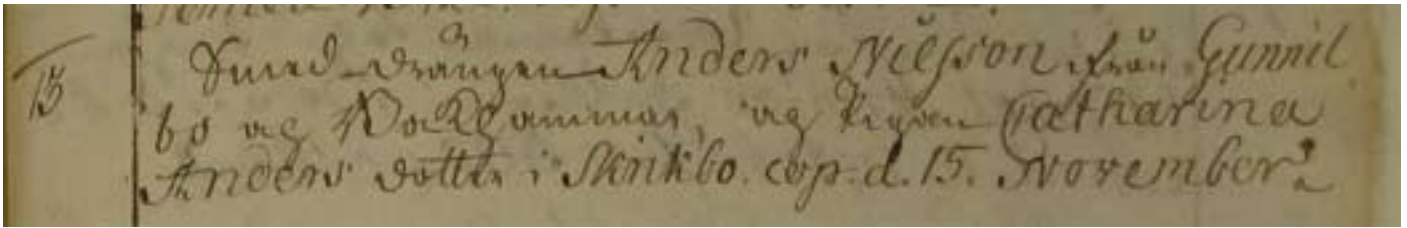 15
Smed-drängen Anders Nilsson ifrån Gunnil
bo och hammar, och Pigan Catharina
Anders dotter i Skrikbo. cop. d. 15. November